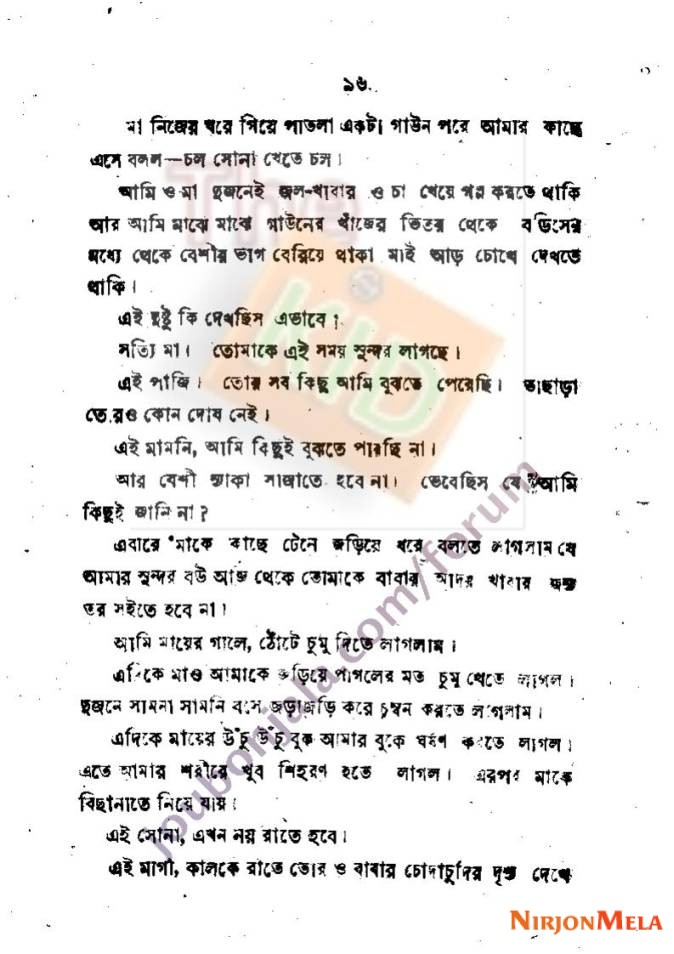 ১৬
মা নিজের ঘরে গিয়ে পাতলা একটা গাউন পরে আমার কাছে
এসে বলল—চল সোনা খেতে চল।
আমি ও মা দুজনেই জল-খাবার ও চা খেয়ে গল্প করতে থাকি
আর আমি মাঝে মাঝে গাউনের খাঁজের ভিতর থেকে বডিসের
মধ্যে থেকে বেশীর ভাগ বেরিয়ে থাকা মাই আড় চোখে দেখতে
থাকি।
এই দুষ্টু কি দেখছিস এভাবে।
সত্যি মা। তোমাকে এই সময় সুন্দর লাগছে।
এই পাজি। তোর সব কিছু আমি বুঝতে পেরেছি। তাছাড়া
তোরও কোন দোষ নেই।
এই মামনি, আমি কিছুই বুঝতে পারছি না।
আর বেশী ন্যাকা সাজাতে হবে না। ভেবেছিস যে আমি
কিছুই জানি না?
এবারে মাকে কাছে টেনে জড়িয়ে ধরে বলতে লাগলাম যে
আমার সুন্দর বউ আজ থেকে তোমাকে বাবার আদর খাবার জন্য
তর সইতে হবে না।
আমি মায়ের গালে, ঠোঁটে চুমু দিতে লাগলাম।
এদিকে মাও আমাকে জড়িয়ে পাগলের মত চুমু খেতে লাগল।
দুজনে সামনা সামনি বসে জড়াজড়ি করে চুম্বন করতে লাগলাম।
এদিকে মায়ের উঁচু উঁচু বুক আমার বুকে ঘর্ষণ করতে লাগল।
এতে আমার শরীরে খুব শিহরণ হতে লাগল। এরপর মাকে
বিছানাতে নিয়ে যায়।
এই সোনা, এখন নয় রাতে হবে।
এই মাগী, কালকে রাতে তোর ও বাবার চোদাচুদির দৃশ্য দেখে
The KID
joubonjala.com/forum
NIRJONMELA